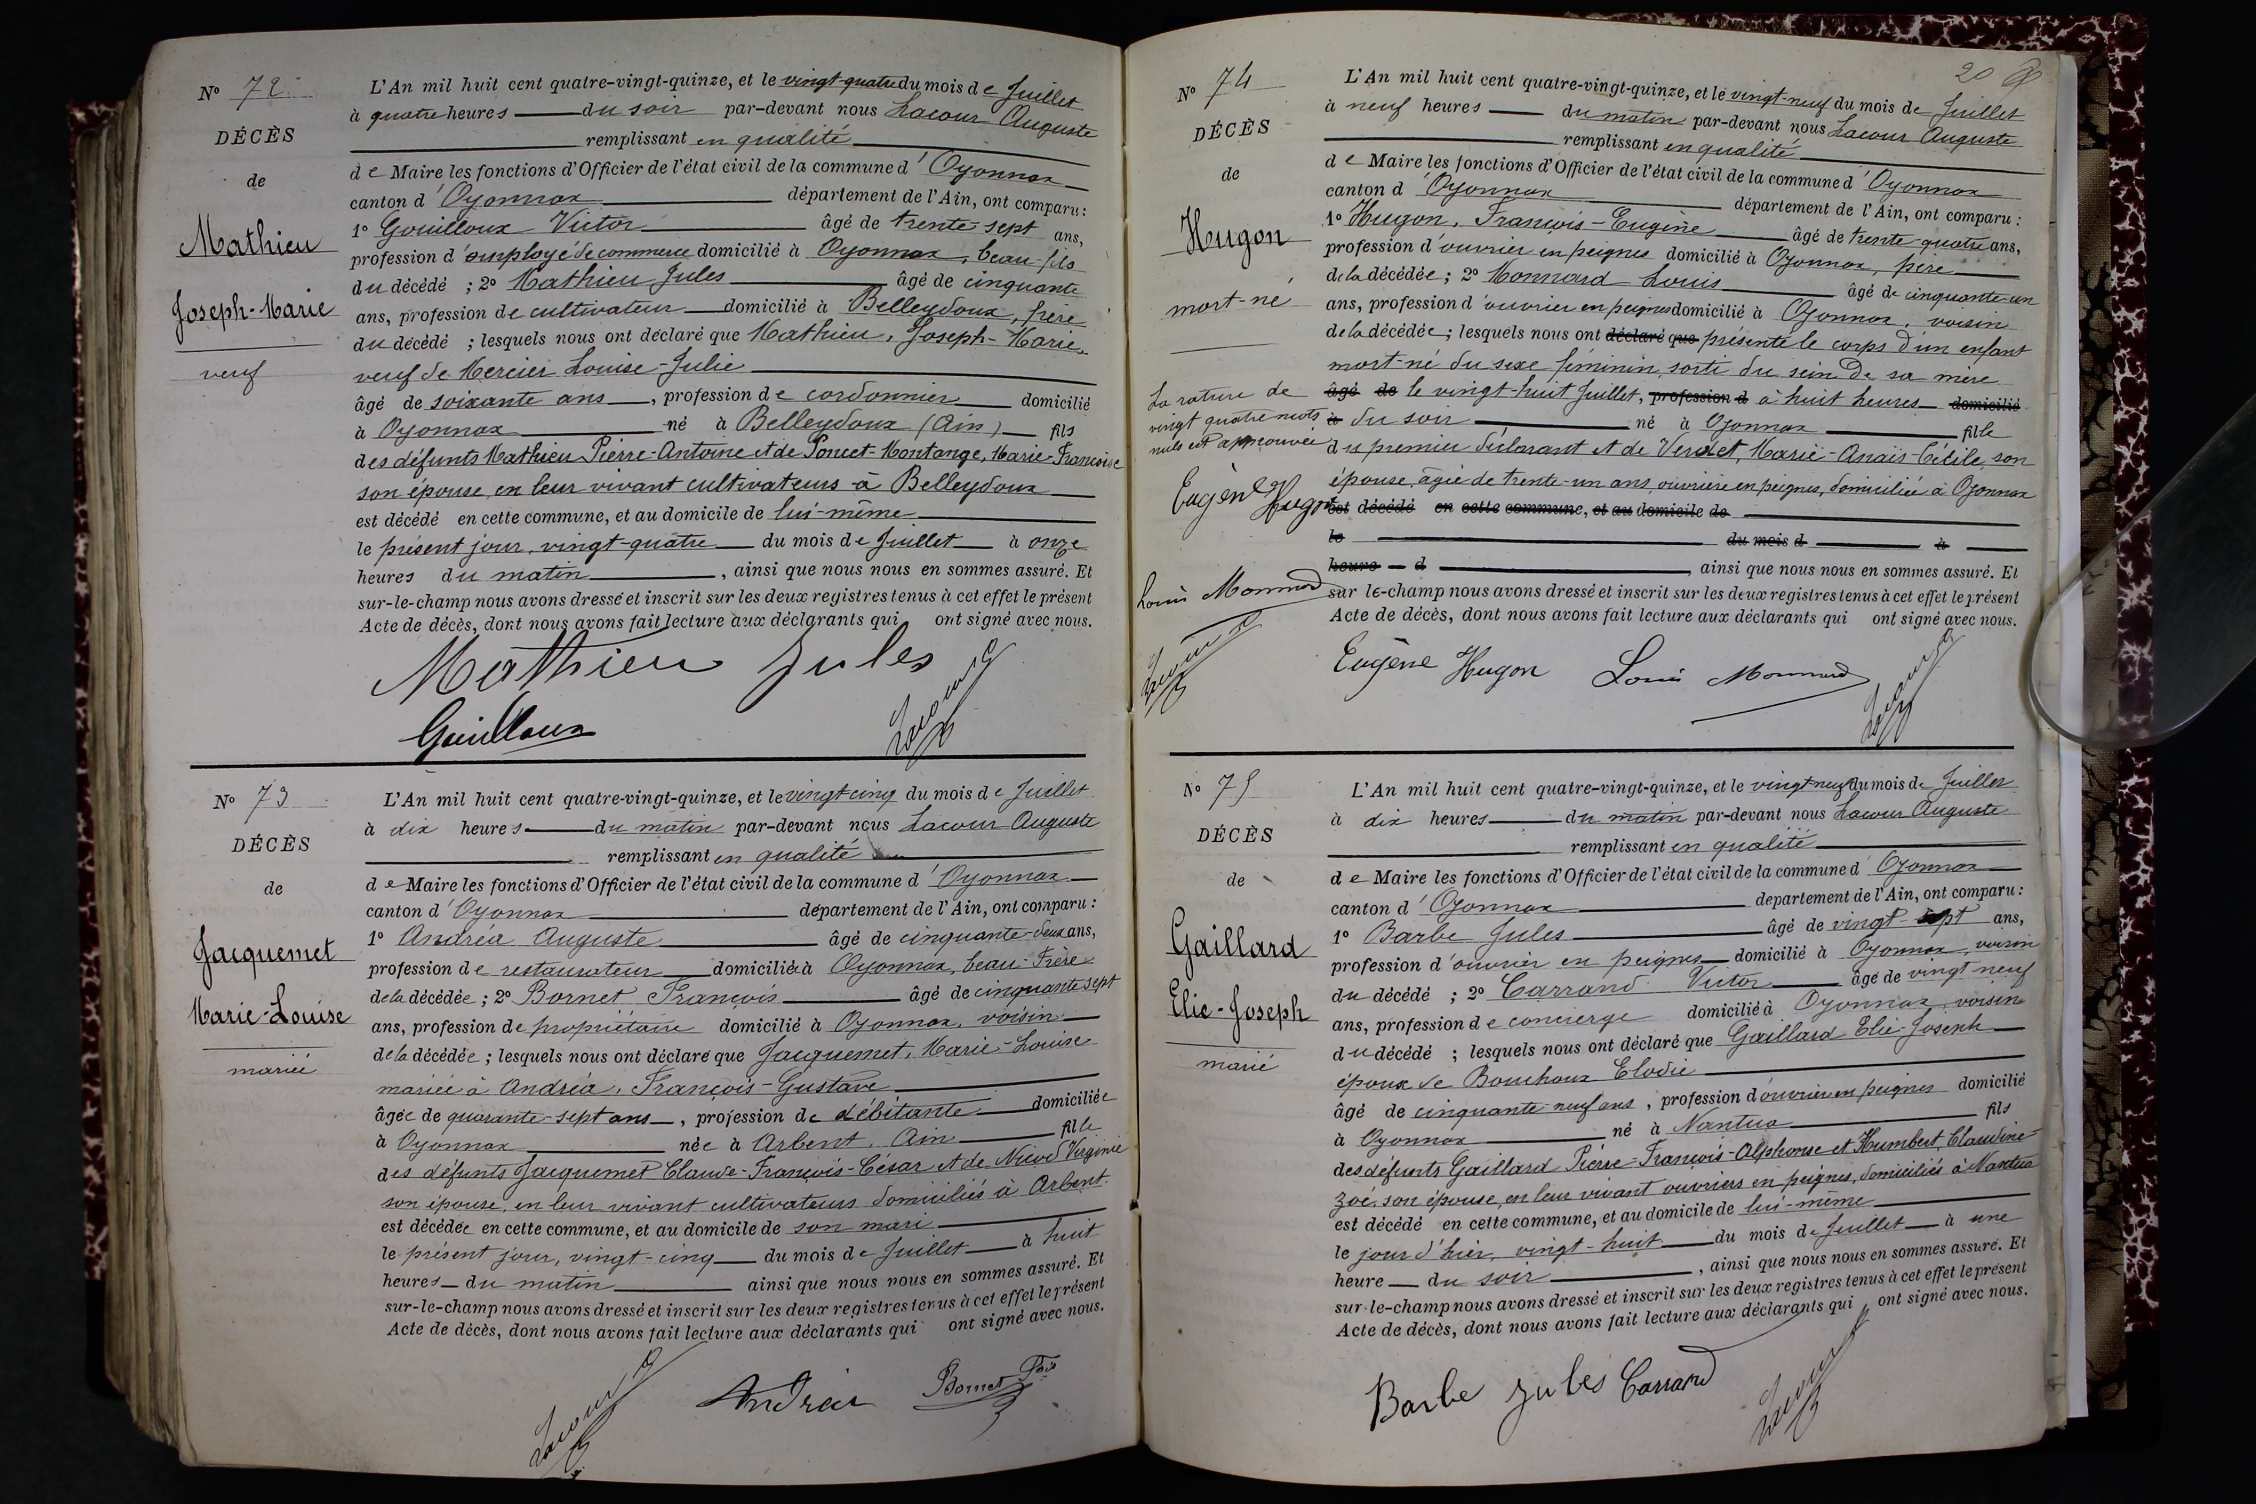 N° 72
DÉCÈS
de
Mathieu
Joseph-Marie
veuf
L'An mil huit cent quatre-vingt-quinze, et le vingt-quatre du mois de Juillet
à quatre heures du soir par-devant nous Lacour Auguste
remplissant en qualité
de Maire les fonctions d'Officier de l'état civil de la commune d'Oyonnax
canton d'Oyonnax département de l'Ain, ont comparu :
1° Gouilloux Victor âgé de trente-sept ans,
profession d'employé de commerce domicilié à Oyonnax, beau-fils
du décédé ; 2° Mathieu Jules âgé de cinquante
ans, profession de cultivateur domicilié à Belleydoux, frère
du décédé ; lesquels nous ont déclaré que Mathieu, Joseph-Marie,
veuf de Mercier Louise-Julie
âgé de soixante ans, profession de cordonnier domicilié
à Oyonnax né à Belleydoux (Ain) fils
des défunts Mathieu Pierre-Antoine et de Poncet-Montange, Marie-Francoise
son épouse, en leur vivant cultivateurs à Belleydoux
est décédé en cette commune, et au domicile de lui-même
le présent jour, vingt-quatre du mois de Juillet à onze
heures du matin, ainsi que nous nous en sommes assuré. Et
sur-le-champ nous avons dressé et inscrit sur les deux registres tenus à cet effet le présent
Acte de décès, dont nous avons fait lecture aux déclarants qui ont signé avec nous.
Mathieu Jules
Gouilloux
Lacour
N° 73
DÉCÈS
de
Jacquemet
Marie-Louise
mariée
L'An mil huit cent quatre-vingt-quinze, et le vingt-cinq du mois de Juillet
à dix heures du matin par-devant nous Lacour Auguste
remplissant en qualité
de Maire les fonctions d'Officier de l'état civil de la commune d'Oyonnax
canton d'Oyonnax département de l'Ain, ont comparu :
1° Andréa Auguste âgé de cinquante-deux ans,
profession de restaurateur domicilié à Oyonnax, beau-frère
de la décédée ; 2° Bornet François âgé de cinquante sept
ans, profession de propriétaire domicilié à Oyonnax, voisin
de la décédée ; lesquels nous ont déclaré que Jacquemet, Marie-Louise
mariée à Andréa, François-Gustave
âgée de quarante-sept ans, profession de débitante domiciliée
à Oyonnax née à Arbent, Ain fille
des défunts Jacquemet Claude-François-César et de Nicod Virginie
son épouse, en leur vivant cultivateurs domiciliés à Arbent
est décédée en cette commune, et au domicile de son mari
le présent jour, vingt-cinq du mois de Juillet à huit
heures du matin ainsi que nous nous en sommes assuré. Et
sur-le-champ nous avons dressé et inscrit sur les deux registres tenus à cet effet le présent
Acte de décès, dont nous avons fait lecture aux déclarants qui ont signé avec nous.
Lacour Andréa Bornet Fois
20
N° 74
DÉCÈS
de
Hugon
mort-né
La rature de
vingt quatre mots
nuls est approuvée
Eugène Hugon
Louis Monnard
Lacour
L'An mil huit cent quatre-vingt-quinze, et le vingt-neuf du mois de Juillet
à neuf heures du matin par-devant nous Lacour Auguste
remplissant en qualité
de Maire les fonctions d'Officier de l'état civil de la commune d'Oyonnax
canton d'Oyonnax département de l'Ain, ont comparu :
1° Hugon, François-Eugène âgé de trente-quatre ans,
profession d'ouvrier en peignes domicilié à Oyonnax, père
de la décédée ; 2° Monnard Louis âgé de cinquante-un
ans, profession d'ouvrier en peignes domicilié à Oyonnax, voisin
de la décédée ; lesquels nous ont déclaré que présenté le corps d'un enfant
mort-né du sexe féminin, sorti du sein de sa mère
âgé de le vingt-huit Juillet, profession d à huit heures domicilié
à du soir né à Oyonnax fille
du premier déclarant et de Verdet, Marie-Anaïs-Cécile, son
épouse, âgée de trente-un ans, ouvrière en peignes, domiciliée à Oyonnax
est décédé en cette commune, et au domicile de
le du mois d à
heure d ainsi que nous nous en sommes assuré. Et
sur le-champ nous avons dressé et inscrit sur les deux registres tenus à cet effet le présent
Acte de décès, dont nous avons fait lecture aux déclarants qui ont signé avec nous.
Eugène Hugon Louis Monnard Lacour
N° 75
DÉCÈS
de
Gaillard
Elie-Joseph
marié
L'An mil huit cent quatre-vingt-quinze, et le vingt-neuf du mois de Juillet
à dix heures du matin par-devant nous Lacour Auguste
remplissant en qualité
de Maire les fonctions d'Officier de l'état civil de la commune d'Oyonnax
canton d'Oyonnax département de l'Ain, ont comparu :
1° Barbe Jules âgé de vingt-sept ans,
profession d'ouvrier en peignes domicilié à Oyonnax, voisin
du décédé ; 2° Carrand Victor âgé de vingt neuf
ans, profession de concierge domicilié à Oyonnax, voisin
du décédé ; lesquels nous ont déclaré que Gaillard Elie-Joseph
époux de Bouchoux Elodie
âgé de cinquante-neuf ans, profession d'ouvrier en peignes domicilié
à Oyonnax né à Nantua fils
des défunts Gaillard Pierre-François-Alphonse et Humbert, Claudine
Zoé, son épouse, en leur vivant ouvriers en peignes, domiciliés à Nantua
est décédé en cette commune, et au domicile de lui-même
le jour d'hier, vingt-huit du mois de Juillet à une
heure du soir, ainsi que nous nous en sommes assuré. Et
sur-le-champ nous avons dressé et inscrit sur les deux registres tenus à cet effet le présent
Acte de décès, dont nous avons fait lecture aux déclarants qui ont signé avec nous.
Barbe Jules Carrand Lacour